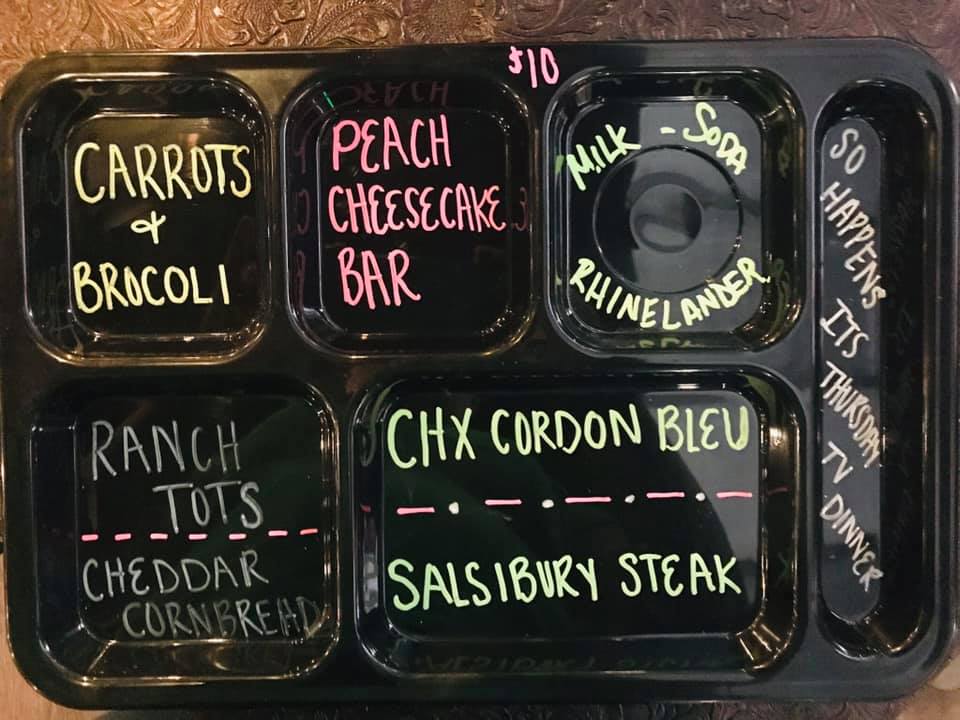 $10
CARROTS
&
BROCOLI
PEACH
CHEESECAKE
BAR
MILK - SODA
RHINELANDER
SO HAPPENS ITS THURSDAY TV DINNER
RANCH
TOTS
CHEDDAR
CORNBREAD
CHX CORDON BLEU
SALSIBURY STEAK